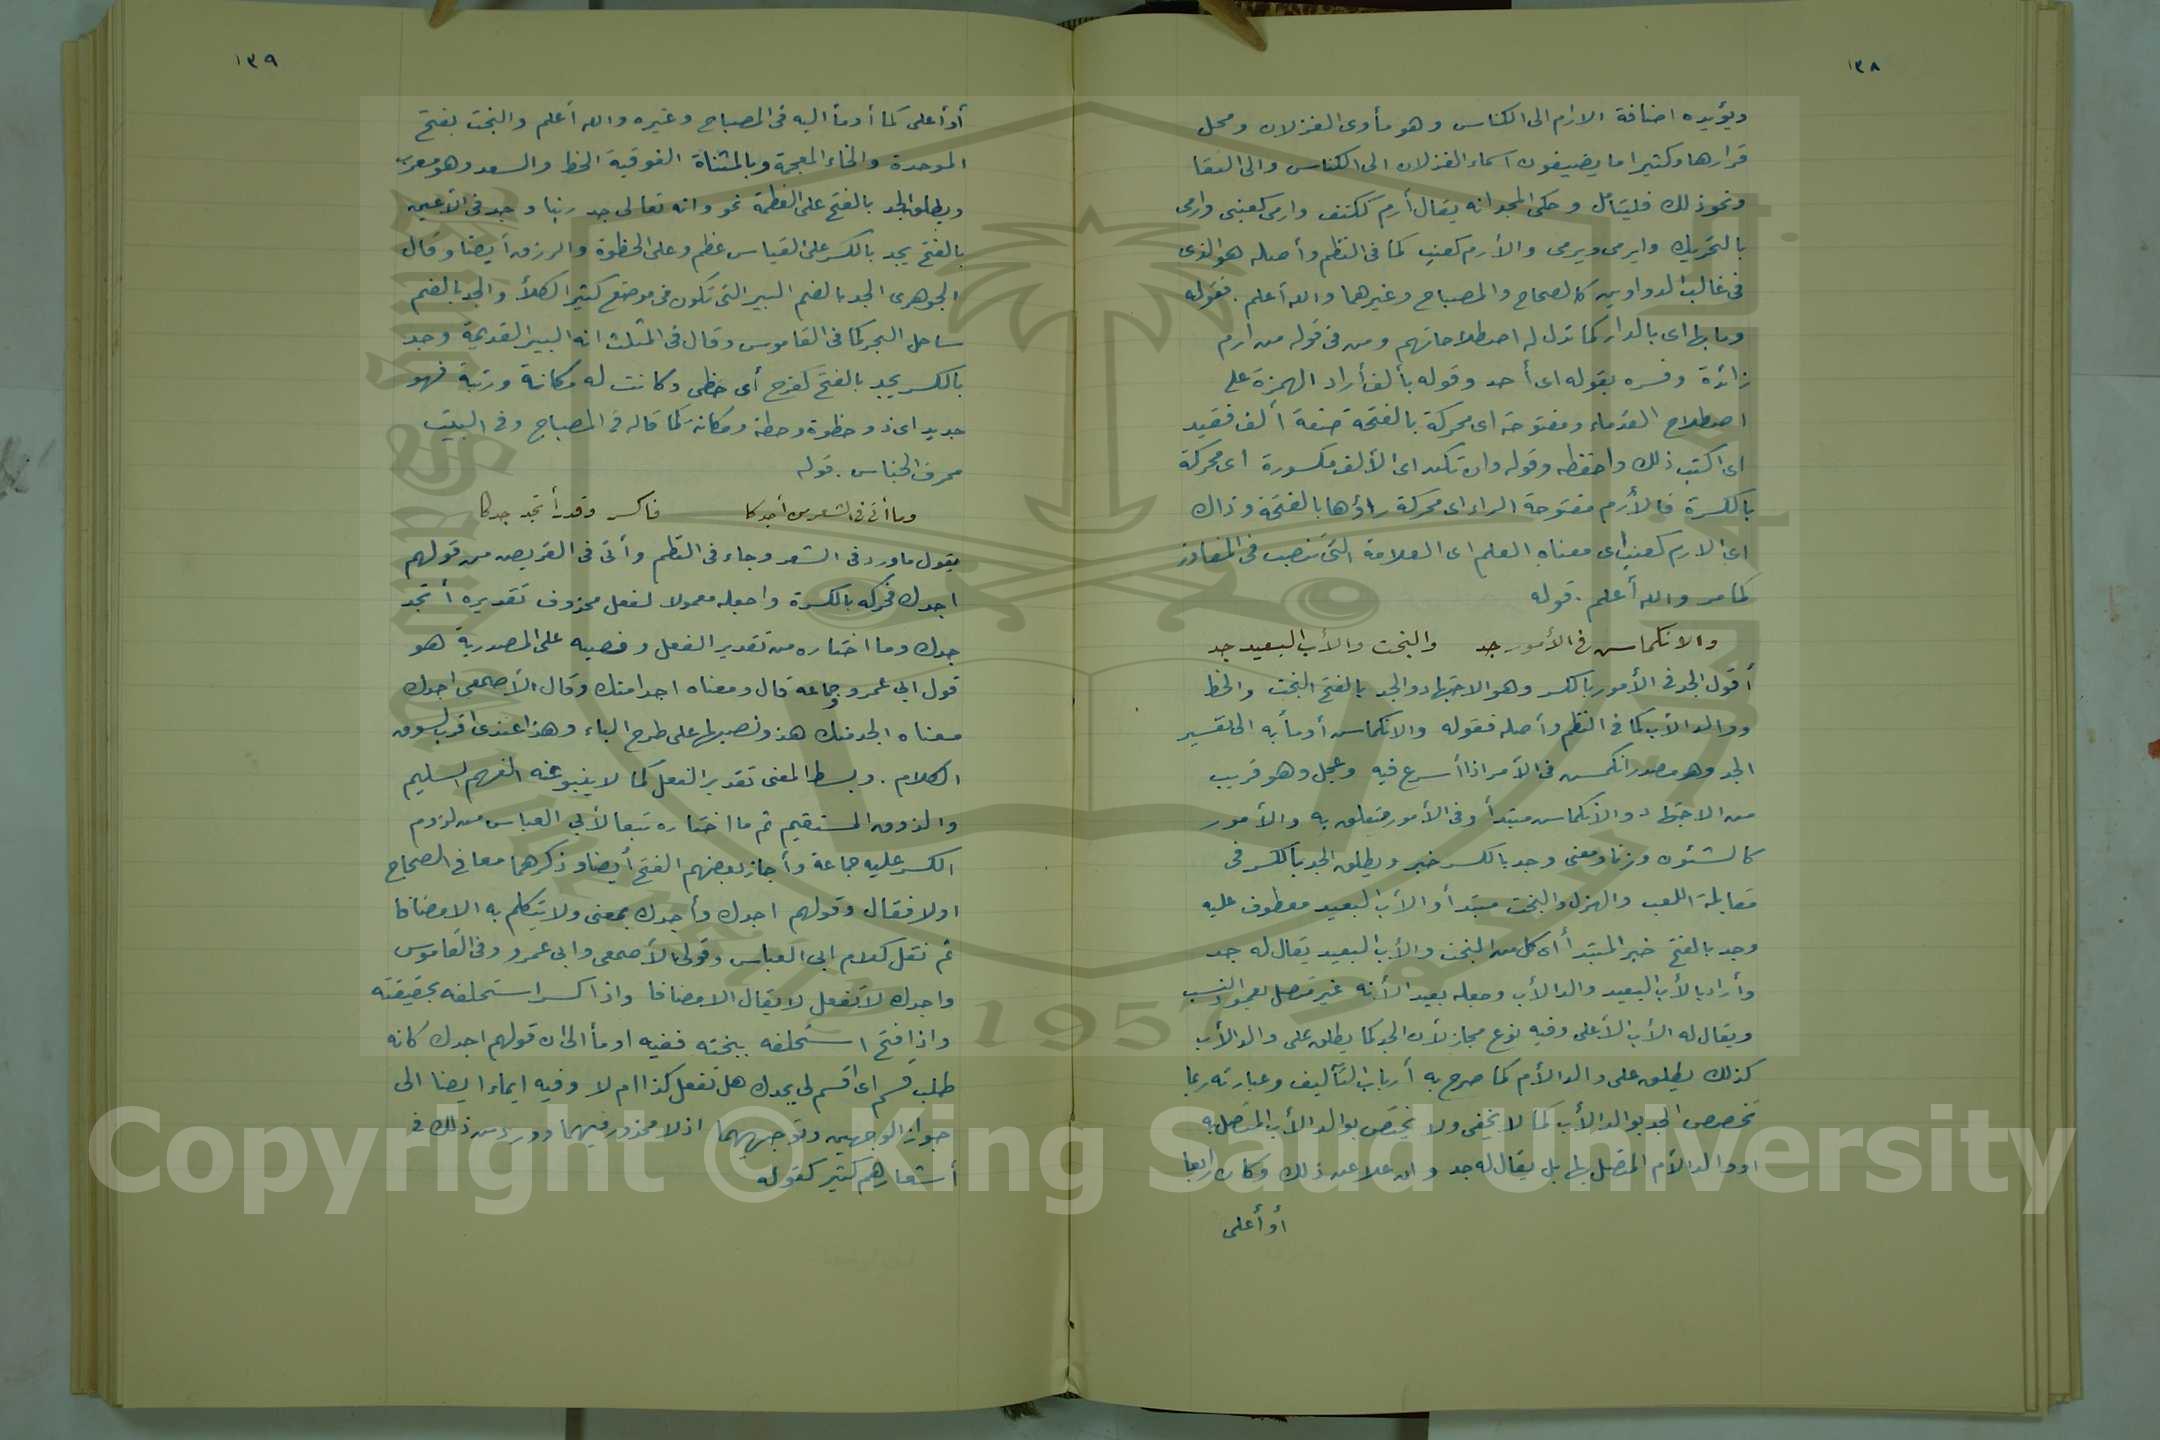 ١٣٨
ويؤيده اضافة الارام الى الكناس وهو مأوى الغزلان ومحل
قرارها وكثيرا ما يضيفون اسماء الغزلان الى الكناس والى النقا
ونحو ذلك فليتأمل وحكى المجد انه يقال أرم ككتف وارمى كعنبى وارمى
بالتحريك وايرمى ويرمى والأرم كعنب كما فى النظم وأصله هو الذى
فى غالب الدواوين كالصحاح والمصباح وغيرها والله أعلم . فقوله
وما بها اى بالدار كما تدل له اصطلاحاتهم ومن فى قوله من ارم
زائدة وفسره بقوله اى أحد وقوله بألف أراد الهمزة على
اصطلاح القدماء ومفتوحة اى محركة بالفتحة صفة ألف فقيد
اى اكتب ذلك واحفظه وقوله وان تكن اى الألف مكسورة اى محركة
بالكسرة فالأرم مفتوحة الراء اى محركة راؤها بالفتحة وذاك
اى الارم كعنب اى معناه العلم اى العلامة التى تنصب فى المفاوز
كما مر والله أعلم . قوله
والانكماس فى الأمور جد والبخت والأب البعيد جد
أقول الجد فى الأمور بالكسر وهو الاجتهاد والجد بالفتح البخت والحظ
ووالد الأب كما فى النظم وأصله فقوله والانكماس أومأ به الى تفسير
الجد وهو مصدر انكمس فى الأمر اذا أسرع فيه وعجل وهو قريب
من الاجتهاد والانكماس مبتدأ وفى الأمور متعلق به والأمور
كالشئون وزنا ومعنى وجد بالكسر خبر ويطلق الجد بالكسر فى
مقابلة اللعب والهزل والبخت مبتدأ والأب البعيد معطوف عليه
وجد بالفتح خبر المبتدأ أى كل من البخت والأب البعيد يقال له جد
وأراد بالأب البعيد والد الأب وجعله بعيدا لأنه غير متصل بعمود النسب
ويقال له الأب الأعلى وفيه نوع مجاز لأن الجد كما يطلق على والد الأب
كذلك يطلق على والد الأم كما صرح به أرباب التأليف وعبارته ربما
تخصص الجد بوالد الأب كما لا يخفى ولا يختص بوالد الأب المتصل به
او والد الأم المتصل بها بل يقال له جد وان علا عن ذلك وكان رابعا
أو أعلى
١٣٩
أو أعلى كما أومأ اليه فى المصباح وغيره والله أعلم والبخت بفتح
الموحدة والخاء المعجمة وبالمثناة الفوقية الحظ والسعد وهو معرب
ويطلق الجد بالفتح على العظمة نحو وانه تعالى جد ربنا وجد فى الأعين
بالفتح يجد بالكسر على القياس عظم وعلى الحظوة والرزق أيضا وقال
الجوهرى الجد بالضم البير التى تكون فى موضع كثير الكلأ والجد بالضم
ساحل البحر كما فى القاموس وقال فى المثلث انه البير القديمة وجد
بالكسر يجد بالفتح كفرح أى حظى وكانت له مكانة ورتبة فهو
جديد اى ذو حظوة وحظة ومكانة كما قاله فى المصباح وفى البيت
محرف الجناس . قوله
وما أتى فى الشعر من أجدكا فاكسر وقدر أتجد جدكا
يقول ما ورد فى الشعر وجاء فى النظم وأتى فى القريض من قولهم
اجدك فحركه بالكسرة واجعله معمولا لفعل محذوف تقديره أتجد
جدك وما اختاره من تقدير الفعل ونصبه على المصدرية هو
قول ابى عمرو وجماعة قال ومعناه اجدا منك وقال الأصمعى اجدك
معناه ابجد منك هذا ونصبها على طرح الباء وهذا عندى اقرب لسوق
الكلام . وبسط المعنى تقدير الفعل كما لا ينبو عنه الفهم السليم
والذوق المستقيم ثم ما اختاره تبعا لأبى العباس من لزوم
الكسر عليه جماعة وأجاز بعضهم الفتح أيضا وذكرهما معا فى الصحاح
اولا فقال وقولهم اجدك وأجدك بمعنى ولا يتكلم به الا مضافا
ثم نقل كلام ابى العباس وقولى الأصمعى وابى عمرو وفى القاموس
واجدك لا تفعل لا يقال الا مضافا واذا كسر استحلفه بحقيقته
واذا فتح استحلفه ببخته ففيه اومأ الى ان قولهم اجدك كانه
طلب قسم اى اقسم لى بجدك هل تفعل كذا ام لا وفيه ايماء ايضا الى
جواز الوجهين وتوجيههما اذ لا محذور فيهما وورد من ذلك فى
أشعارهم كثير كقوله
Copyright © King Saud University
1957